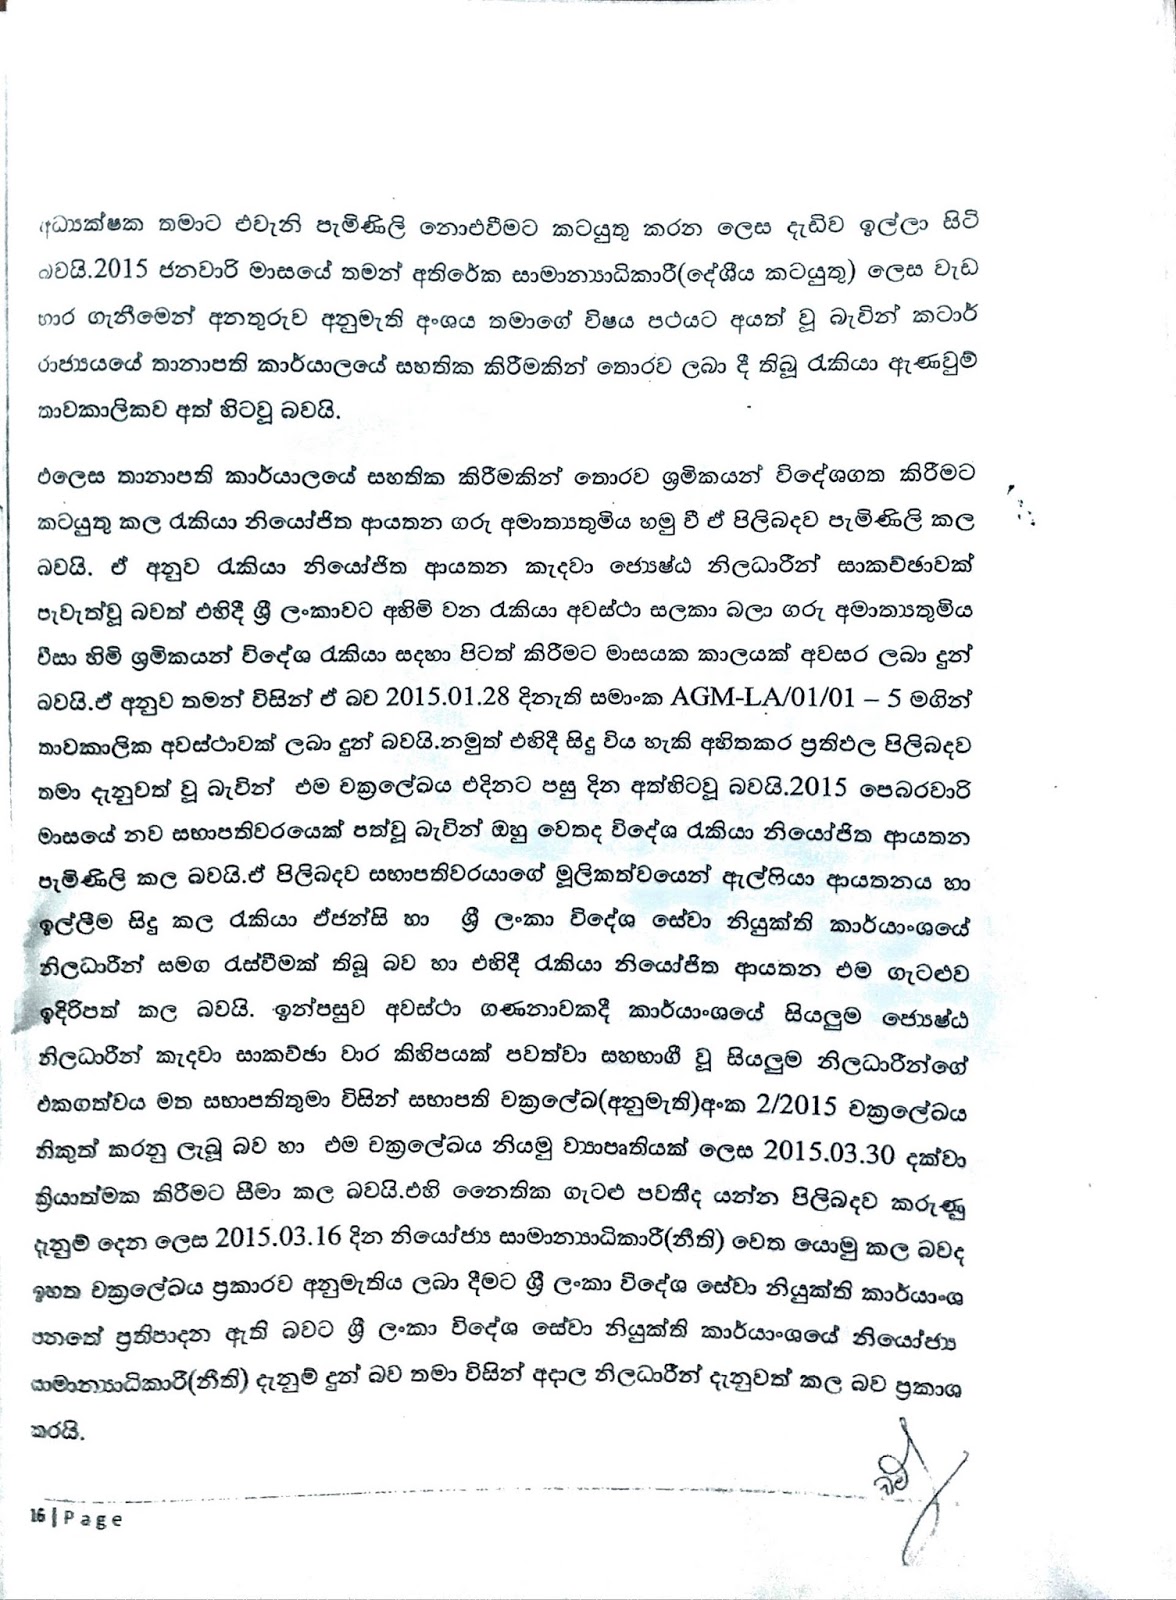 අධ්‍යක්ෂක තමාට එවැනි පැමිණිලි නොඑවීමට කටයුතු කරන ලෙස දැඩිව ඉල්ලා සිටි
බවයි.2015 ජනවාරි මාසයේ තමන් අතිරේක සාමාන්‍යාධිකාරී(දේශීය කටයුතු) ලෙස වැඩ
භාර ගැනීමෙන් අනතුරුව අනුමැති අංශය තමාගේ විෂය පථයට අයත් වූ බැවින් කටාර්
රාජ්‍යයයේ තානාපති කාර්යාලයේ සහතික කිරීමකින් තොරව ලබා දී තිබූ රැකියා ඇණවුම්
තාවකාලිකව අත් හිටවූ බවයි.
එලෙස තානාපති කාර්යාලයේ සහතික කිරීමකින් තොරව ශ්‍රමිකයන් විදේශගත කිරීමට
කටයුතු කල රැකියා නියෝජිත ආයතන ගරු අමාත්‍යතුමිය හමු වී ඒ පිලිබදව පැමිණිලි කල
බවයි. ඒ අනුව රැකියා නියෝජිත ආයතන කැදවා ජ්‍යෙෂ්ඨ නිලධාරීන් සාකච්ඡාවක්
පැවැත්වූ බවත් එහිදී ශ්‍රී ලංකාවට අහිමි වන රැකියා අවස්ථා සලකා බලා ගරු අමාත්‍යතුමිය
වීසා හිමි ශ්‍රමිකයන් විදේශ රැකියා සදහා පිටත් කිරීමට මාසයක කාලයක් අවසර ලබා දුන්
බවයි.ඒ අනුව තමන් විසින් ඒ බව 2015.01.28 දිනැති සමාංක AGM-LA/01/01 – 5 මගින්
තාවකාලික අවස්ථාවක් ලබා දුන් බවයි.නමුත් එහිදී සිදු විය හැකි අහිතකර ප්‍රතිඵල පිලිබදව
තමා දැනුවත් වූ බැවින් එම චක්‍රලේඛය එදිනට පසු දින අත්හිටවූ බවයි.2015 පෙබරවාරි
මාසයේ නව සභාපතිවරයෙක් පත්වූ බැවින් ඔහු වෙතද විදේශ රැකියා නියෝජිත ආයතන
පැමිණිලි කල බවයි.ඒ පිලිබදව සභාපතිවරයාගේ මූලිකත්වයෙන් ඇල්ෆියා ආයතනය හා
ඉල්ලීම සිදු කල රැකියා ඒජන්සි හා ශ්‍රී ලංකා විදේශ සේවා නියුක්ති කාර්යාංශයේ
නිලධාරීන් සමග රැස්වීමක් තිබූ බව හා එහිදී රැකියා නියෝජිත ආයතන එම ගැටළුව
ඉදිරිපත් කල බවයි. ඉන්පසුව අවස්ථා ගණනාවකදී කාර්යාංශයේ සියලුම ජ්‍යෙෂ්ඨ
නිලධාරීන් කැදවා සාකච්ඡා වාර කිහිපයක් පවත්වා සහභාගී වූ සියලුම නිලධාරීන්ගේ
එකගත්වය මත සභාපතිතුමා විසින් සභාපති චක්‍රලේඛ(අනුමැති)අංක 2/2015 චක්‍රලේඛය
නිකුත් කරනු ලැබූ බව හා එම චක්‍රලේඛය නියමු ව්‍යාපෘතියක් ලෙස 2015.03.30 දක්වා
ක්‍රියාත්මක කිරීමට සීමා කල බවයි.එහි නෛතික ගැටළු පවතීද යන්න පිලිබදව කරුණු
දැනුම් දෙන ලෙස 2015.03.16 දින නියෝජ්‍ය සාමාන්‍යාධිකාරී(නීති) වෙත යොමු කල බවද
ඉහත චක්‍රලේඛය ප්‍රකාරව අනුමැතිය ලබා දීමට ශ්‍රී ලංකා විදේශ සේවා නියුක්ති කාර්යාංශ
පනතේ ප්‍රතිපාදන ඇති බවට ශ්‍රී ලංකා විදේශ සේවා නියුක්ති කාර්යාංශයේ නියෝජ්‍ය
සාමාන්‍යාධිකාරී(නීති) දැනුම් දුන් බව තමා විසින් අදාල නිලධාරීන් දැනුවත් කල බව ප්‍රකාශ
කරයි.
16 | Page